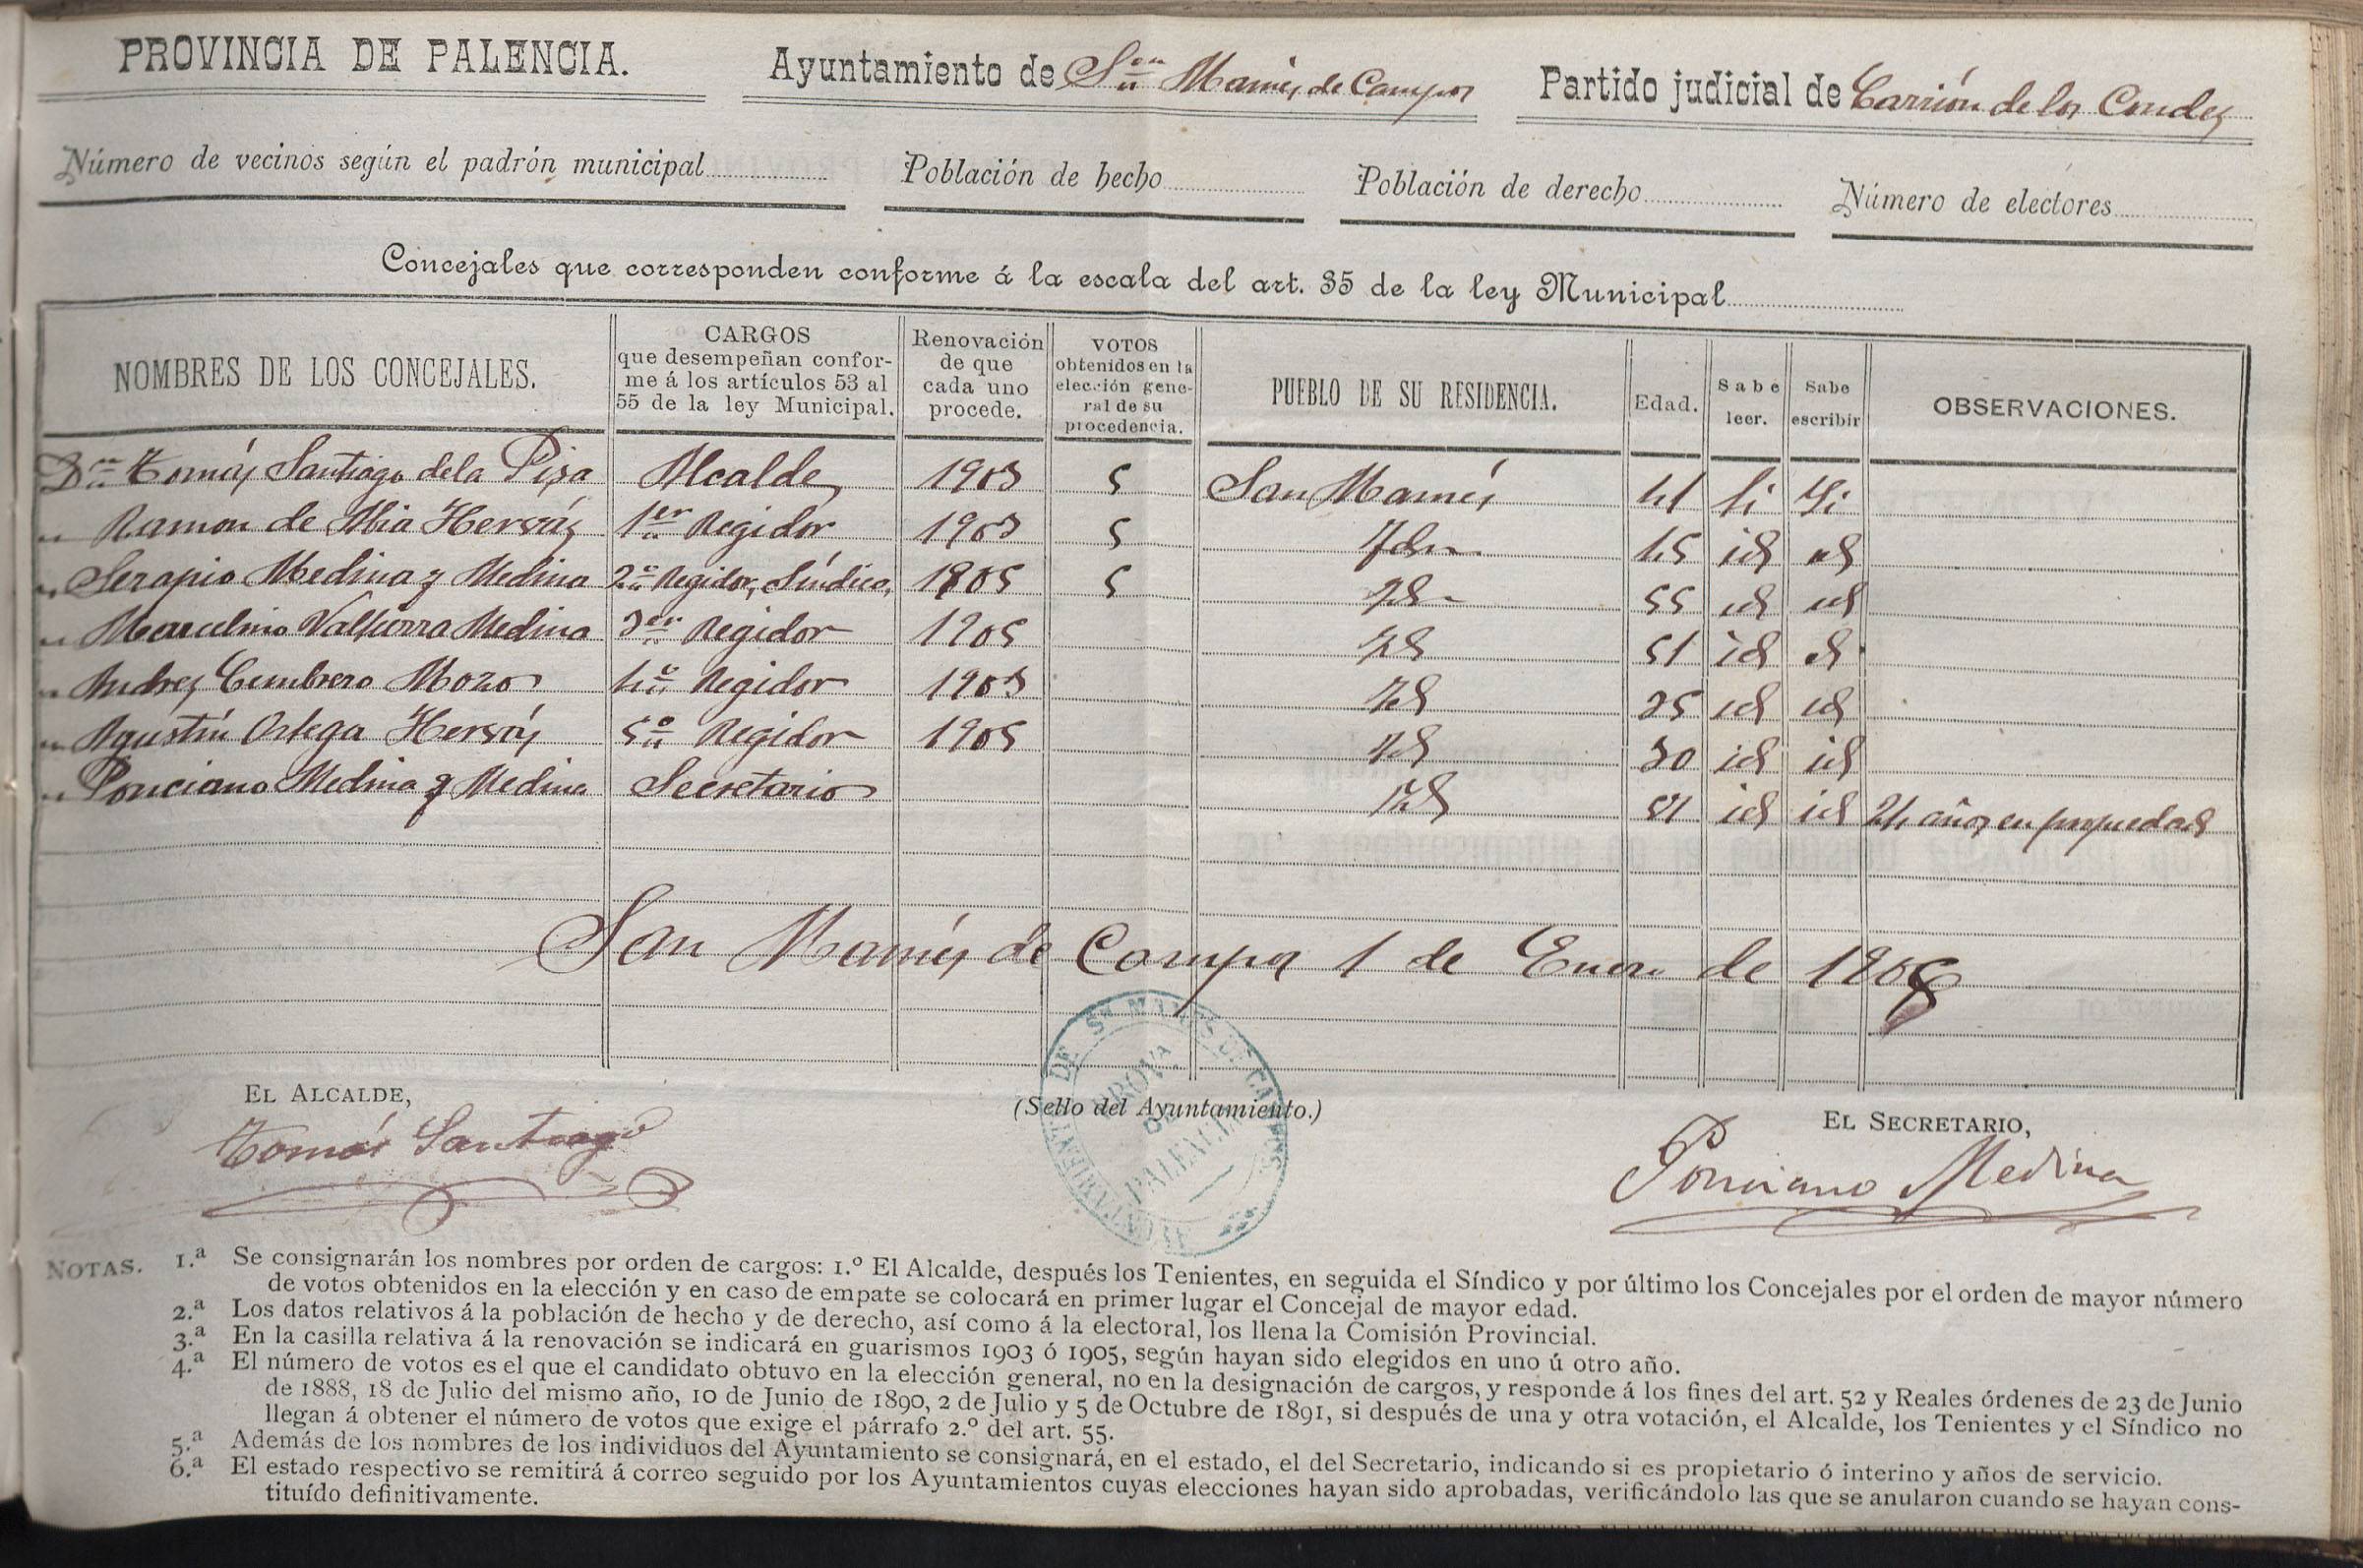 PROVINCIA DE PALENCIA. Ayuntamiento de Sn Mamés de Campos Partido judicial de Carrión de los Condes
Número de vecinos según el padrón municipal Población de hecho Población de derecho Número de electores
Concejales que corresponden conforme á la escala del art. 35 de la ley Municipal
NOMBRES DE LOS CONCEJALES.
CARGOS
que desempeñan confor-
me á los artículos 53 al
55 de la ley Municipal.
Renovación
de que
cada uno
procede.
VOTOS
obtenidos en la
elección gene-
ral de su
procedencia.
PUEBLO DE SU RESIDENCIA.
Edad.
Sabe
leer.
Sabe
escribir
OBSERVACIONES.
Dn Tomás Santiago de la Pisa Alcalde 1903 5 San Mamés 41 Si Si
" Ramon de Abia Herrás 1er Regidor 1903 5 Idm 45 id id
" Serapio Medina y Medina 2º Regidor, Síndico, 1905 5 Id 55 id id
" Marcelino Valtierra Medina 3er Regidor 1905 Id 51 id id
" Andres Cembrero Mozo 4º Regidor 1903 Id 35 id id
" Agustín Ortega Herrás 5º Regidor 1905 Id 30 id id
" Ponciano Medina y Medina Secretario Id 51 id id 24 años en propiedad
San Mamés de Campos 1 de Enero de 1906
EL ALCALDE,
Tomás Santiago
(Sello del Ayuntamiento.)
AYUNTAMIENTO DE SN MAMES DE CAMPOS
PROVA
DE
PALENCIA
EL SECRETARIO,
Ponciano Medina
NOTAS. 1.ª Se consignarán los nombres por orden de cargos: 1.º El Alcalde, después los Tenientes, en seguida el Síndico y por último los Concejales por el orden de mayor número
de votos obtenidos en la elección y en caso de empate se colocará en primer lugar el Concejal de mayor edad.
2.ª Los datos relativos á la población de hecho y de derecho, así como á la electoral, los llena la Comisión Provincial.
3.ª En la casilla relativa á la renovación se indicará en guarismos 1903 ó 1905, según hayan sido elegidos en uno ú otro año.
4.ª El número de votos es el que el candidato obtuvo en la elección general, no en la designación de cargos, y responde á los fines del art. 52 y Reales órdenes de 23 de Junio
de 1888, 18 de Julio del mismo año, 10 de Junio de 1890, 2 de Julio y 5 de Octubre de 1891, si después de una y otra votación, el Alcalde, los Tenientes y el Síndico no
llegan á obtener el número de votos que exige el párrafo 2.º del art. 55.
5.ª Además de los nombres de los individuos del Ayuntamiento se consignará, en el estado, el del Secretario, indicando si es propietario ó interino y años de servicio.
6.ª El estado respectivo se remitirá á correo seguido por los Ayuntamientos cuyas elecciones hayan sido aprobadas, verificándolo las que se anularon cuando se hayan cons-
tituído definitivamente.